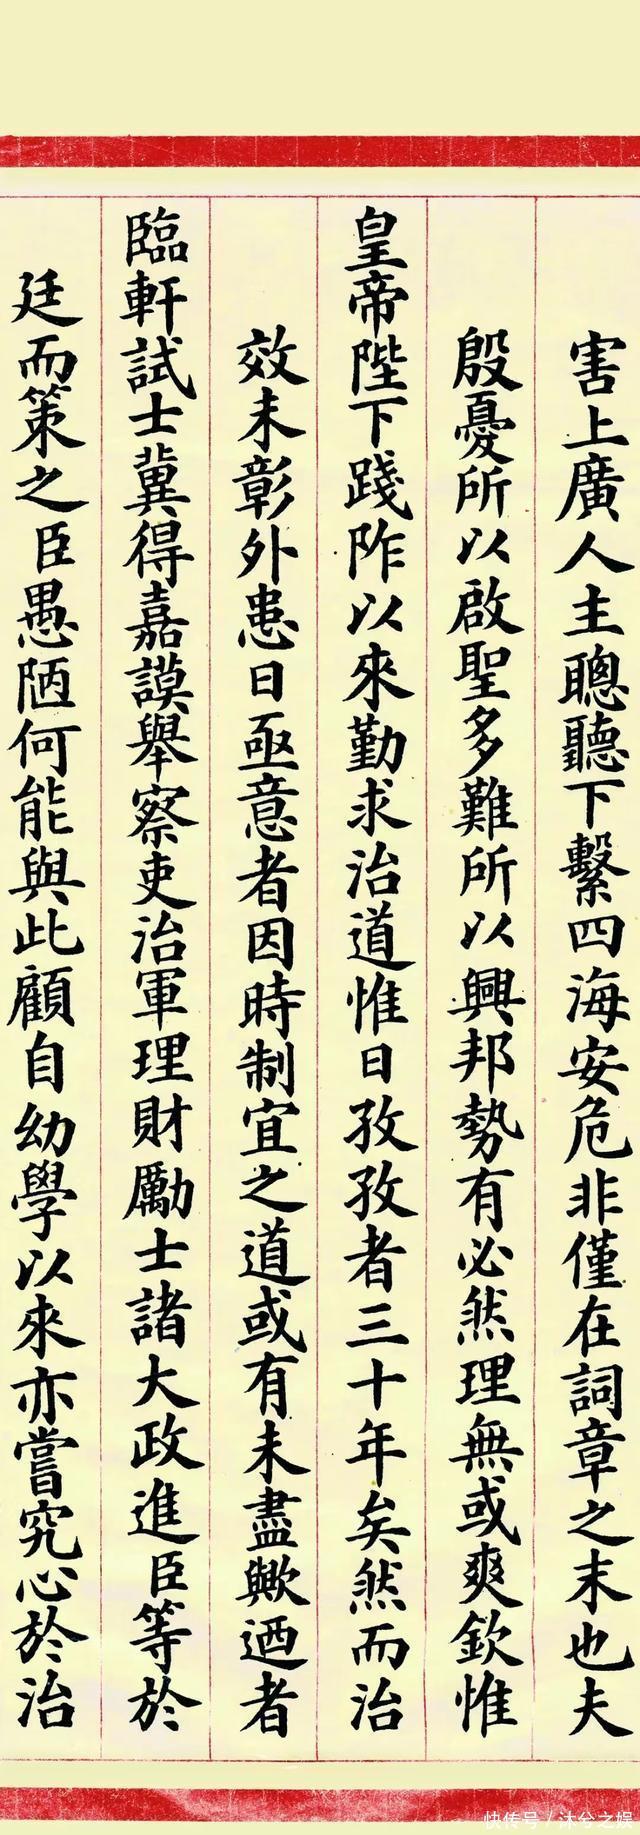 害上廣人主聰聽下繫四海安危非僅在詞章之末也夫
殷憂所以啟聖多難所以興邦勢有必然理無或爽欽惟
皇帝陛下踐阼以來勤求治道惟日孜孜者三十年矣然而治
效未彰外患日亟意者因時制宜之道或有未盡歟迺者
臨軒試士冀得嘉謨舉察吏治軍理財勵士諸大政進臣等於
廷而策之臣愚陋何能與此顧自幼學以來亦嘗究心於治
快传号/沐兮之娱